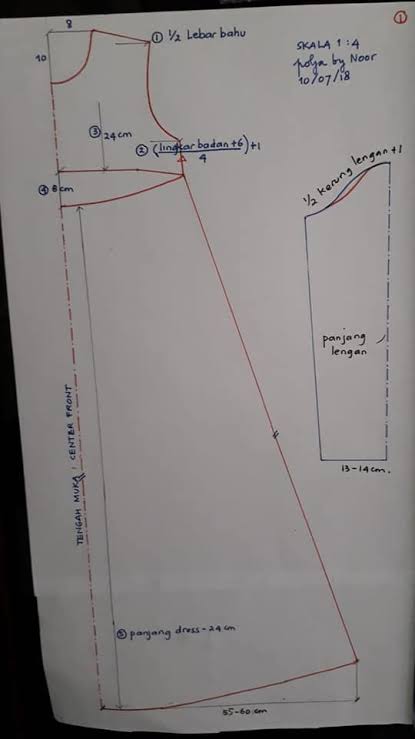 ①
8
① 1/2 Lebar bahu
SKALA 1:4
pola by Noor
10/07/18
10
③ 24 cm
② (lingkar badan+6)+1
4
1/2 kerung lengan+1
④ 8 cm
panjang
lengan
13-14 cm.
TENGAH MUKA / CENTER FRONT
⑤ panjang dress-24 cm
55-60 cm